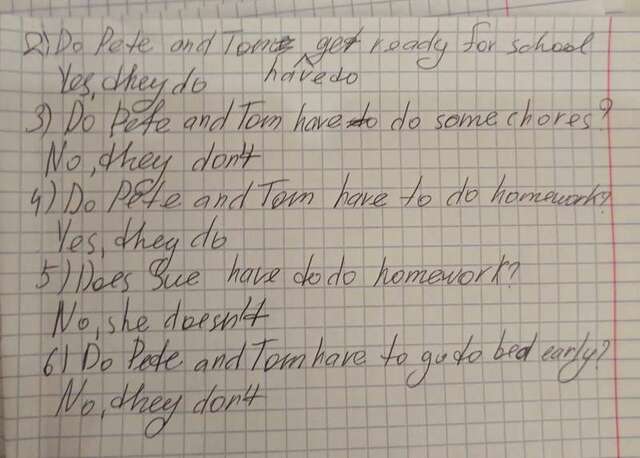 2) Do Pete and Tom get ready for school
Yes, they do have do
3) Do Pete and Tom have to do some chores?
No, they don't
4) Do Pete and Tom have to do homework?
Yes, they do
5) Does Sue have do do homework?
No, she doesn't
6) Do Pete and Tom have to go to bed early?
No, they don't